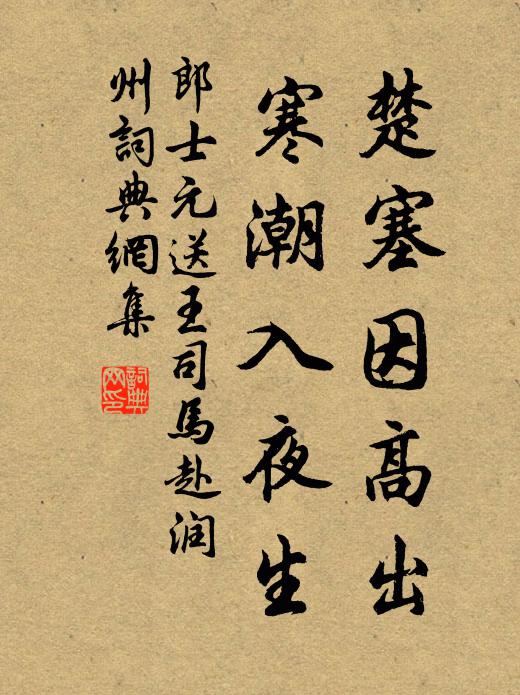 楚塞因高出
寒潮入夜生
郎士元送王司馬赴润
州詞典網集
詞典
网印